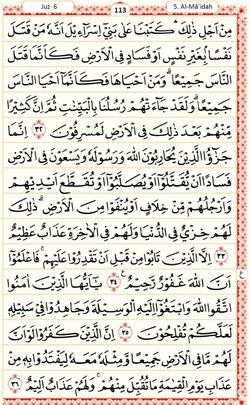 Juz 6
113
5. Al-Mâ'idah
مِنْ اَجْلِ ذٰلِكَ ۛ كَتَبْنَا عَلٰى بَنِيْٓ اِسْرَآءِيْلَ اَنَّهٗ مَنْ قَتَلَ
نَفْسًاۢ بِغَيْرِ نَفْسٍ اَوْ فَسَادٍ فِى الْاَرْضِ فَكَاَنَّمَا قَتَلَ
النَّاسَ جَمِيْعًا ؕ وَمَنْ اَحْيَاهَا فَكَاَنَّمَاۤ اَحْيَا النَّاسَ
جَمِيْعًا ؕ وَلَقَدْ جَآءَتْهُمْ رُسُلُنَا بِالْبَيِّنٰتِ ثُمَّ اِنَّ كَثِيْرًا
مِّنْهُمْ بَعْدَ ذٰلِكَ فِى الْاَرْضِ لَمُسْرِفُوْنَ ﴿۳۲﴾ اِنَّمَا
جَزٰٓؤُا الَّذِيْنَ يُحَارِبُوْنَ اللّٰهَ وَرَسُوْلَهٗ وَيَسْعَوْنَ فِى الْاَرْضِ
فَسَادًا اَنْ يُّقَتَّلُوْۤا اَوْ يُصَلَّبُوْۤا اَوْ تُقَطَّعَ اَيْدِيْهِمْ
وَاَرْجُلُهُمْ مِّنْ خِلَافٍ اَوْ يُنْفَوْا مِنَ الْاَرْضِ ؕ ذٰلِكَ
لَهُمْ خِزْىٌ فِى الدُّنْيَا وَلَهُمْ فِى الْاٰخِرَةِ عَذَابٌ عَظِيْمٌ
﴿۳۳﴾ اِلَّا الَّذِيْنَ تَابُوْا مِنْ قَبْلِ اَنْ تَقْدِرُوْا عَلَيْهِمْ ۚ فَاعْلَمُوْۤا
اَنَّ اللّٰهَ غَفُوْرٌ رَّحِيْمٌ ﴿۳۴﴾ يٰۤاَيُّهَا الَّذِيْنَ اٰمَنُوا
اتَّقُوا اللّٰهَ وَابْتَغُوْۤا اِلَيْهِ الْوَسِيْلَةَ وَجَاهِدُوْا فِيْ سَبِيْلِهٖ
لَعَلَّكُمْ تُفْلِحُوْنَ ﴿۳۵﴾ اِنَّ الَّذِيْنَ كَفَرُوْا لَوْ اَنَّ
لَهُمْ مَّا فِى الْاَرْضِ جَمِيْعًا وَّمِثْلَهٗ مَعَهٗ لِيَفْتَدُوْا بِهٖ مِنْ
عَذَابِ يَوْمِ الْقِيٰمَةِ مَا تُقُبِّلَ مِنْهُمْ ۚ وَلَهُمْ عَذَابٌ اَلِيْمٌ ﴿۳۶﴾